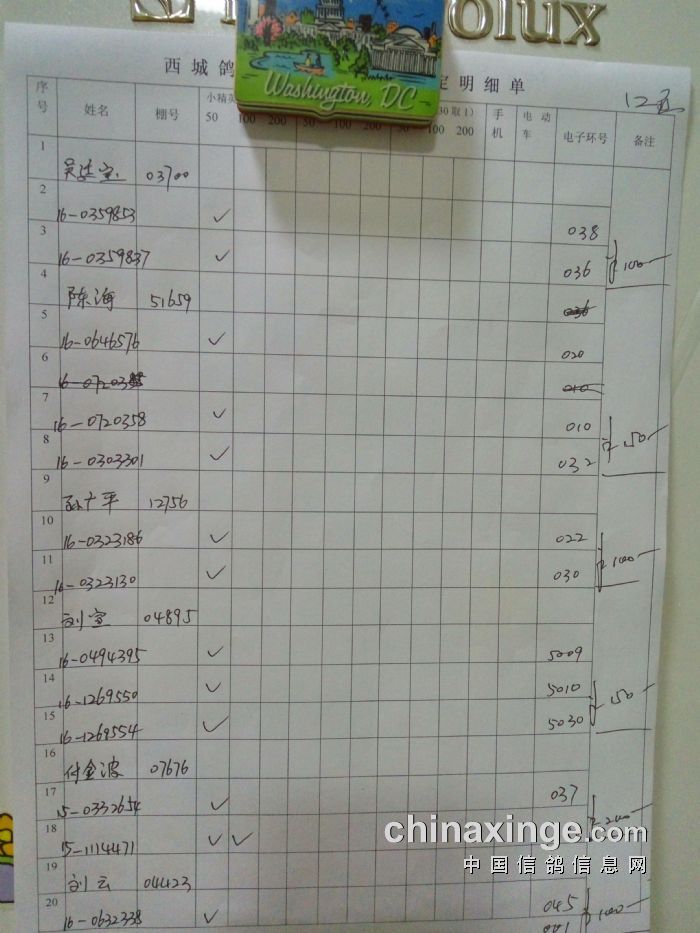 olux
Washington, DC
西城鸽 定明细单
12
序号 姓名 棚号 小精英 50 100 200 50 100 200 50 100 200 30取1) 手机 电动车 电子环号 备注
1 03700
2 16-0359853 ✓ 038
3 16-0359837 ✓ 036 100
4 陈海 51659 036
5 16-0646576 ✓ 020
6 010
7 16-0720358 ✓ 010
8 16-0303301 ✓ 032 150
9 孙广平 12756
10 16-0323186 ✓ 022
11 16-0323130 ✓ 030 100
12 刘宝 04895
13 16-0494395 ✓ 5009
14 16-1269550 ✓ 5010
15 16-1269554 ✓ 5030 150
16 付金波 07676
17 15-0332654 ✓ 037
18 15-1114471 ✓ ✓ 200
19 刘云 04423
20 16-0632338 ✓ 045 100
chinaxinge.com
中国信鸽信息网